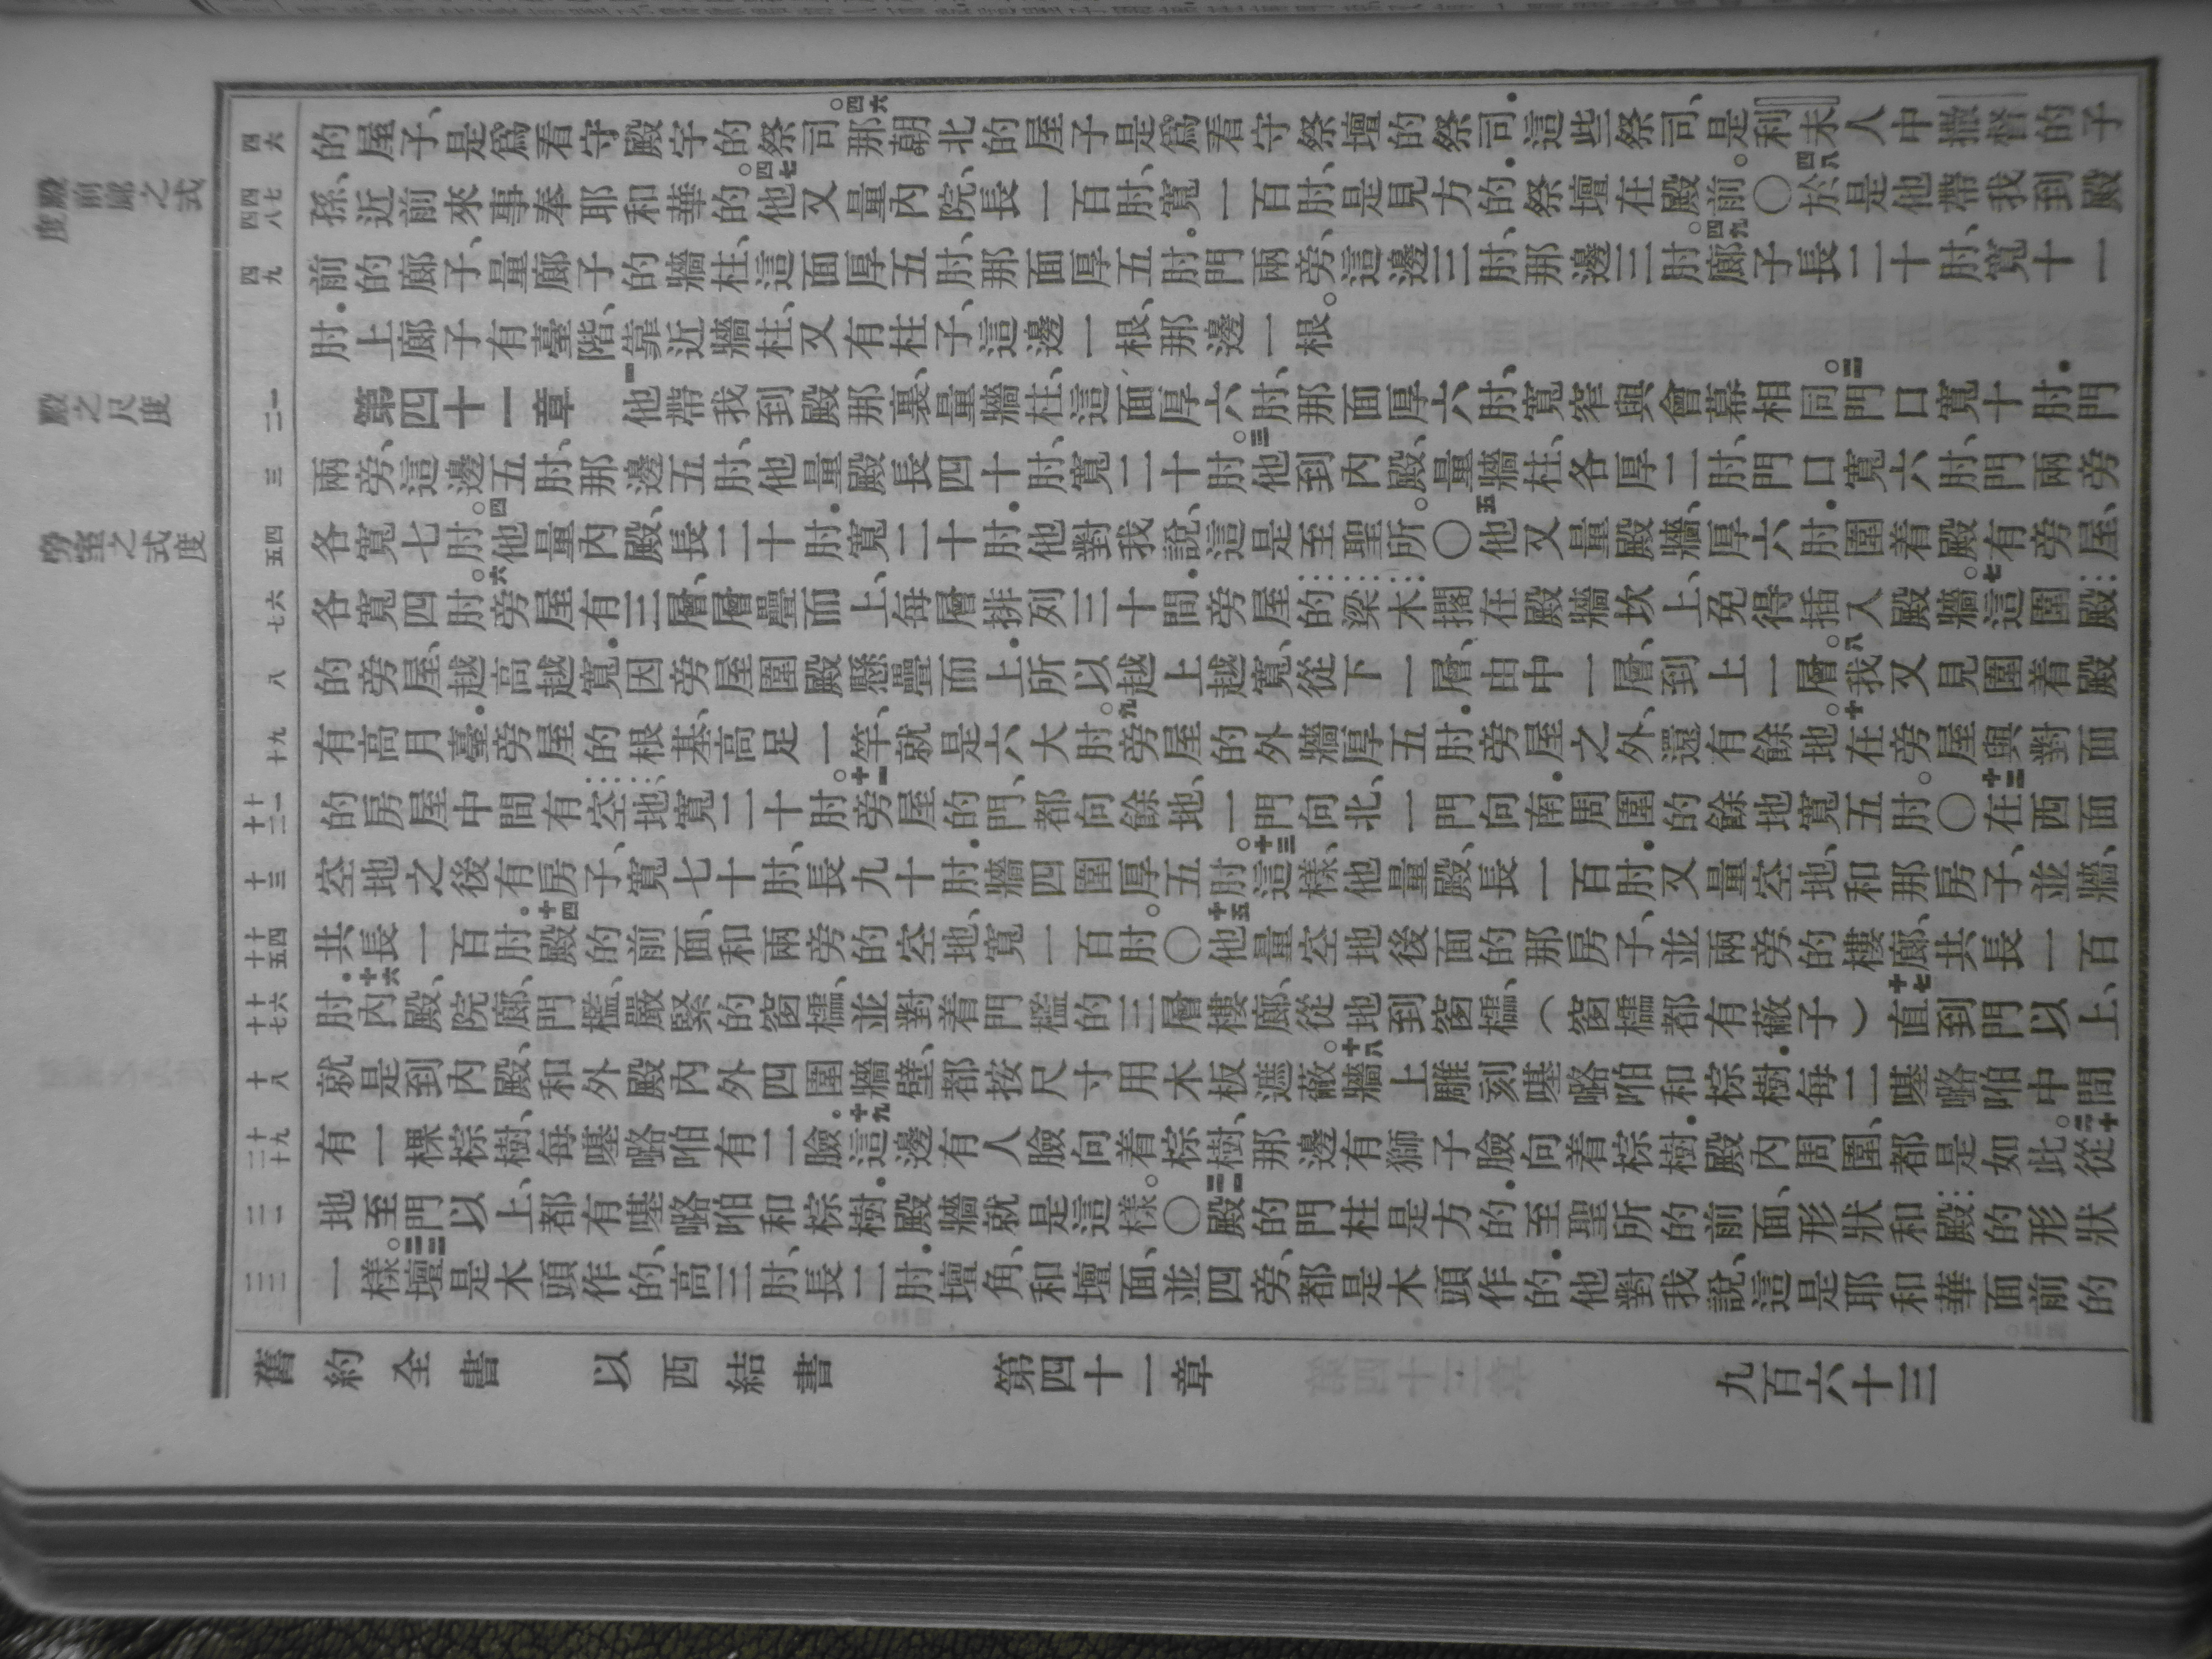 殿前廊之式度
殿之尺度
旁室之式度
四六
四七 四八
四九
一 二
三
四 五
六 七
八
九 十
十一 十二
十三
十四 十五
十六 十七
十八
十九 二十
二一
二二
的屋子、是爲看守殿宇的祭司。四六那朝北的屋子是爲看守祭壇的祭司．這些祭司、是利未人中撒督的子
孫、近前來事奉耶和華的。四七他又量內院、長一百肘、寬一百肘、是見方的．祭壇在殿前。〇四八於是他帶我到殿
前的廊子、量廊子的牆柱、這面厚五肘、那面厚五肘．門兩旁、這邊三肘、那邊三肘。四九廊子長二十肘、寬十一
肘．上廊子有臺階、靠近牆柱、又有柱子、這邊一根、那邊一根。
第四十一章 一他帶我到殿那裏、量牆柱、這面厚六肘、那面厚六肘、寬窄與會幕相同。二門口寬十肘．門
兩旁、這邊五肘、那邊五肘、他量殿長四十肘、寬二十肘。三他到內殿、量牆柱、各厚二肘、門口寬六肘、門兩旁
各寬七肘。四他量內殿、長二十肘．寬二十肘．他對我說、這是至聖所。〇五他又量殿牆、厚六肘．圍着殿有旁屋、
各寬四肘。六旁屋有三層、層疊而上、每層排列三十間．旁屋的梁木擱在殿牆坎上、免得插入殿牆。七這圍殿
的旁屋、越高越寬．因旁屋圍殿懸疊而上．所以越上越寬、從下一層、由中一層、到上一層。八我又見圍着殿
有高月臺．旁屋的根基、高足一竿、就是六大肘。九旁屋的外牆厚五肘．旁屋之外、還有餘地。十在旁屋與對面
的房屋中間有空地、寬二十肘。十一旁屋的門、都向餘地、一門向北、一門向南．周圍的餘地寬五肘。〇十二在西面
空地之後有房子、寬七十肘、長九十肘．牆四圍厚五肘。十三這樣、他量殿、長一百肘．又量空地、和那房子、並牆、
共長一百肘。十四殿的前面、和兩旁的空地、寬一百肘。〇十五他量空地後面的那房子、並兩旁的樓廊、共長一百
肘．十六內殿、院廊、門檻、嚴緊的窗櫺、並對着門檻的三層樓廊、從地到窗櫺、（窗櫺都有蔽子）十七直到門以上、
就是到內殿、和外殿內外四圍牆壁、都按尺寸用木板遮蔽。十八牆上雕刻𠼻㗉㗑和棕樹．每二𠼻㗉㗑中間
有一棵棕樹、每𠼻㗉㗑有二臉。十九這邊有人臉向着棕樹、那邊有獅子臉向着棕樹．殿內周圍、都是如此。二十從
地至門以上、都有𠼻㗉㗑和棕樹．殿牆就是這樣。〇二一殿的門柱是方的．至聖所的前面、形狀和殿的形狀
一樣。二二壇是木頭作的、高三肘、長二肘．壇角、和壇面、並四旁、都是木頭作的．他對我說、這是耶和華面前的
舊約全書 以西結書 第四十一章 九百六十三